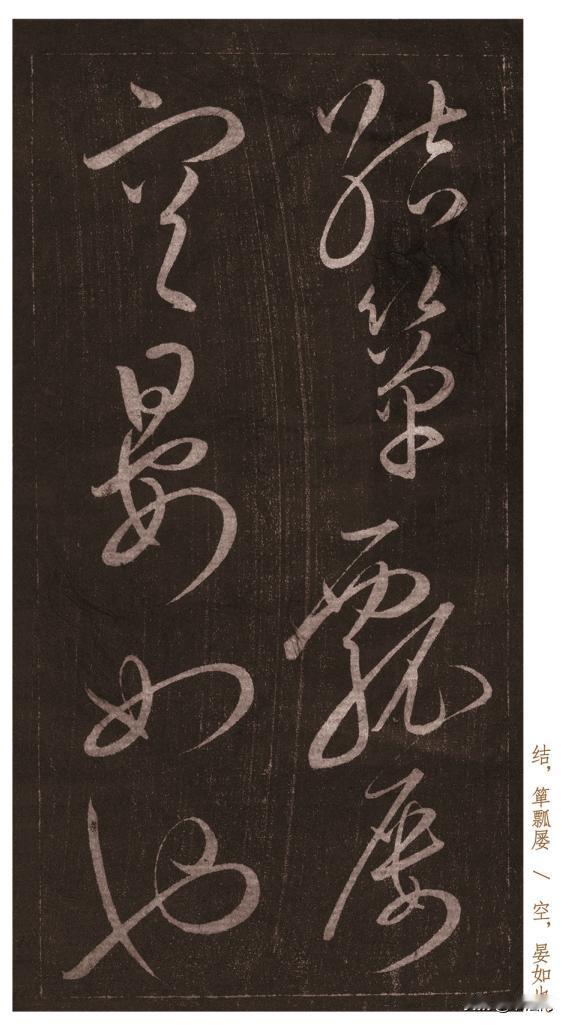 結簞瓢屢
空晏如也
结，箪瓢屡 / 空，晏如也